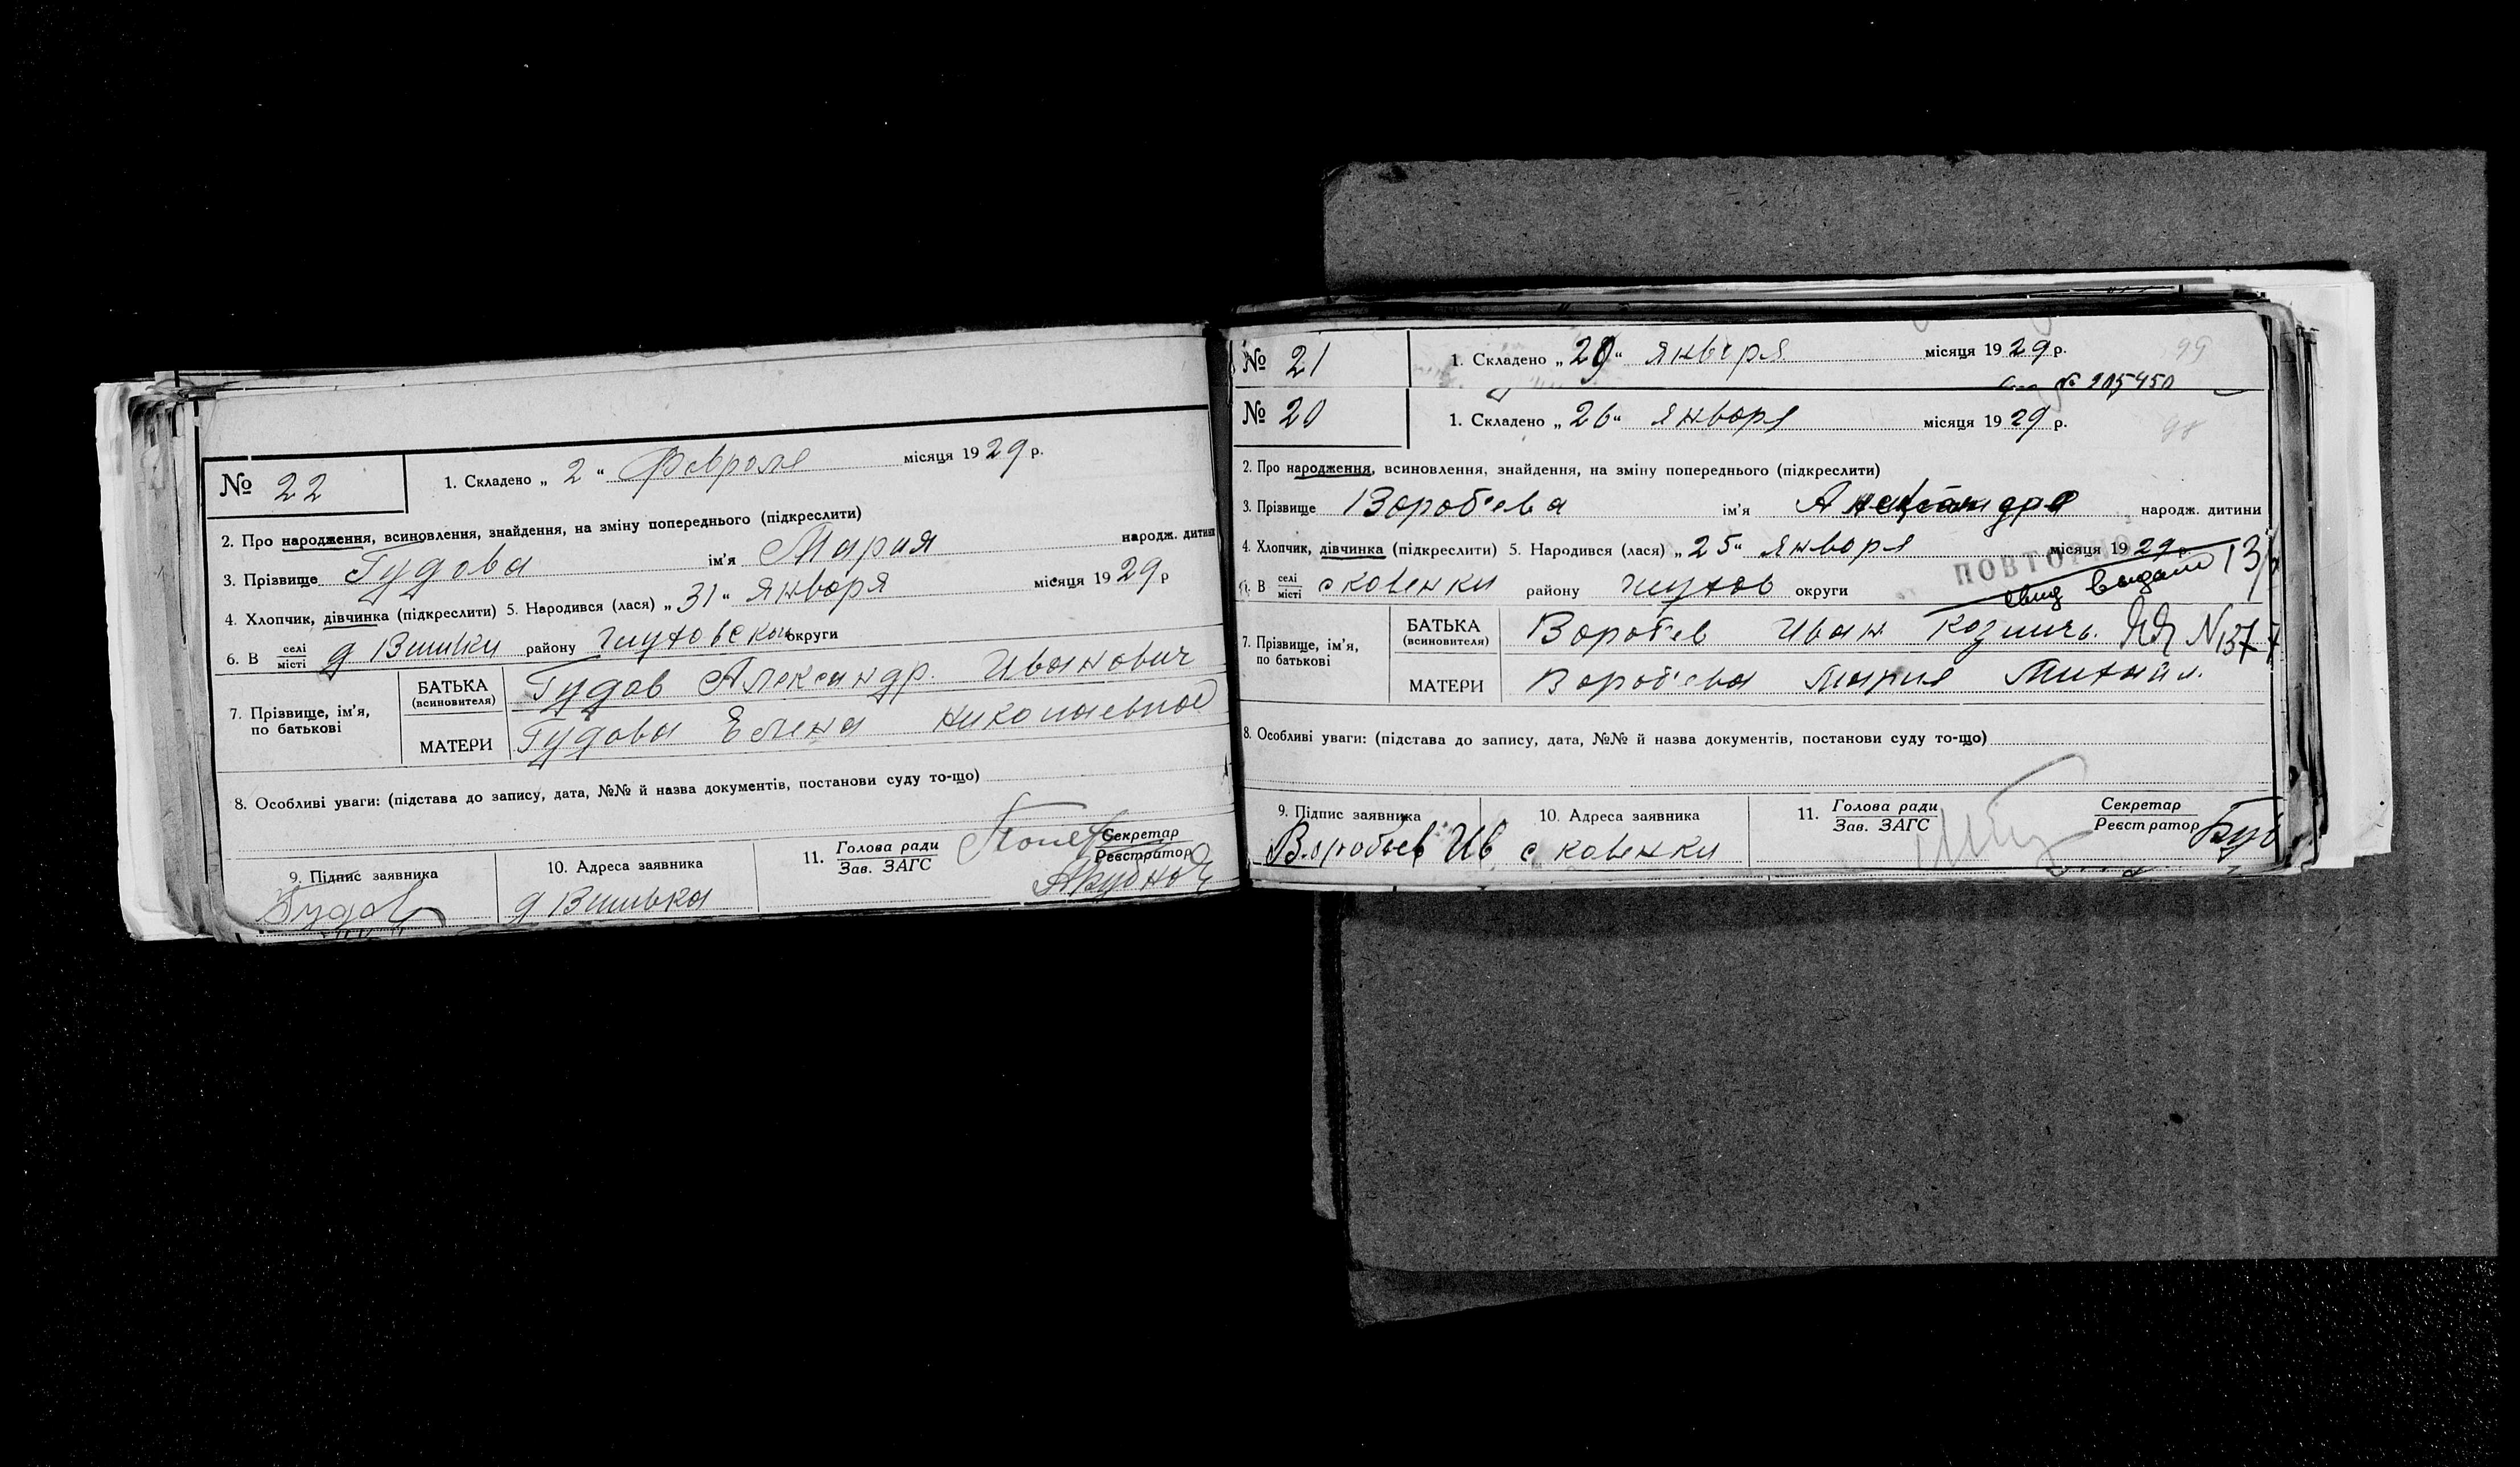 № 22
1. Складено „ 2 “ Февраля місяця 1929 р.
2. Про народження, всиновлення, знайдення, на зміну попереднього (підкреслити)
3. Прізвище Гудова ім'я Мария народж. дитини
4. Хлопчик, дівчинка (підкреслити) 5. Народився (лася) „ 31 “ Января місяця 1929 р
6. В селі місті д Вишки району Глуховской округи
7. Прізвище, ім'я, по батькові
БАТЬКА (всиновителя) Гудов Александр. Иванович
МАТЕРИ Гудова Елена Николаевна
8. Особливі уваги: (підстава до запису, дата, №№ й назва документів, постанови суду то-що)
9. Підпис заявника
Гудов
10. Адреса заявника
11. Голова ради Зав. ЗАГС
Секретар Реєстратор
№ 21
1. Складено „ 29 “ января місяця 1929 р.
99
№ 205450
№ 20
1. Складено „ 26 “ января місяця 1929 р.
98
2. Про народження, всиновлення, знайдення, на зміну попереднього (підкреслити)
3. Прізвище Вороб'ева ім'я Александра народж. дитини
4. Хлопчик, дівчинка (підкреслити) 5. Народився (лася) „ 25 “ января місяця 1929 р.
ПОВТОРНО
6. В селі місті с ковенки району Глухов округи
свид выдано
7. Прізвище, ім'я, по батькові
БАТЬКА (всиновителя) Вороб'ев Иван Козмичь.
МАТЕРИ Вороб'ева Мария Михайл.
8. Особливі уваги: (підстава до запису, дата, №№ й назва документів, постанови суду то-що)
9. Підпис заявника
Воробьев Ив
10. Адреса заявника
с ковенки
11. Голова ради Зав. ЗАГС
Секретар Реєстратор